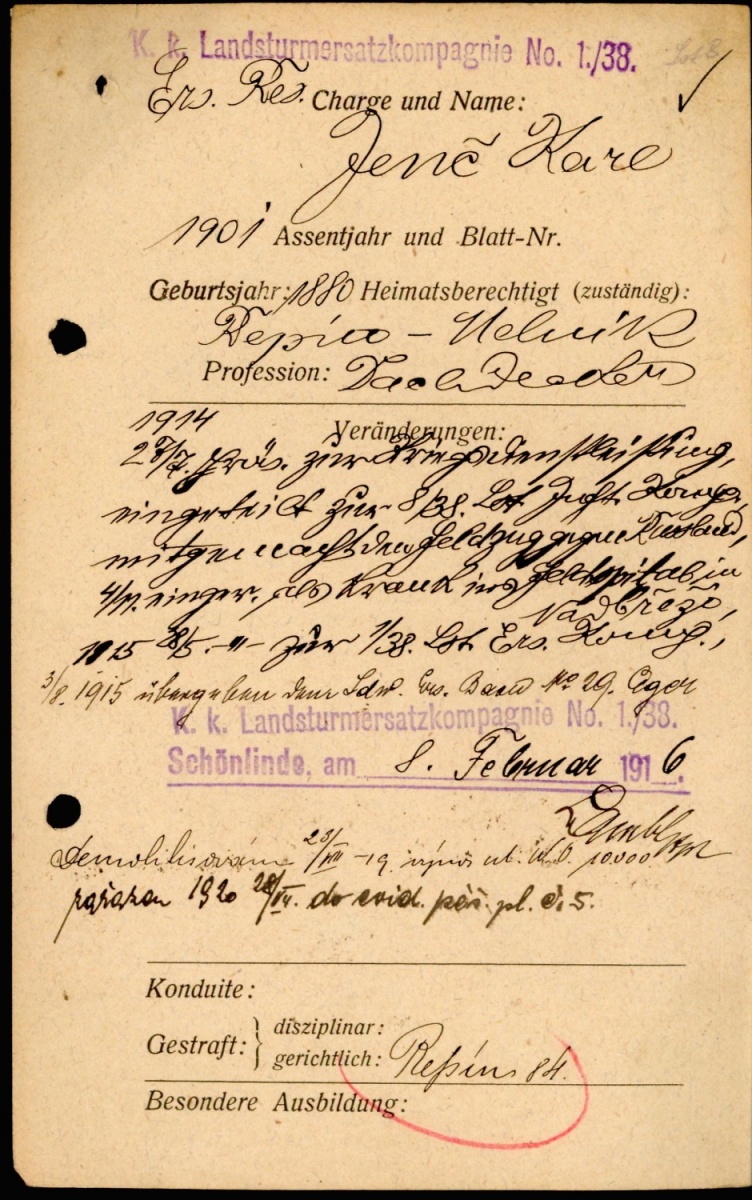 K. k. Landsturmersatzkompagnie No. 1./38.
Ers. Res. Charge und Name:
Jenč Karl
1901 Assentjahr und Blatt-Nr.
Geburtsjahr: 1880 Heimatsberechtigt (zuständig):
Řepín – Melnik
Profession: Dachdecker
1914
Veränderungen:
28/7. präs. zur Kriegsdienstleistung,
eingeteilt zur 8/38. Lst. Inft. Komp.,
mitgemacht den Feldzug gegen Russland,
4/11. einger. als Krank ins Feldspital in
Nadbřeží,
1915 28/5. -"- zur 1/38. Lst. Ers. Komp.,
3/8. 1915 übergeben dem Ldw. Ers. Baon No 29. Eger
K. k. Landsturmersatzkompagnie No. 1./38.
Schönlinde, am 8. Februar 1916.
Demobilisován 23/VII -19 výnos 10.000
zařazen 1920 28/IV. do evid. pěš. pl. č. 5.
Konduite:
Gestraft: disziplinar:
gerichtlich: Řepín 84.
Besondere Ausbildung: